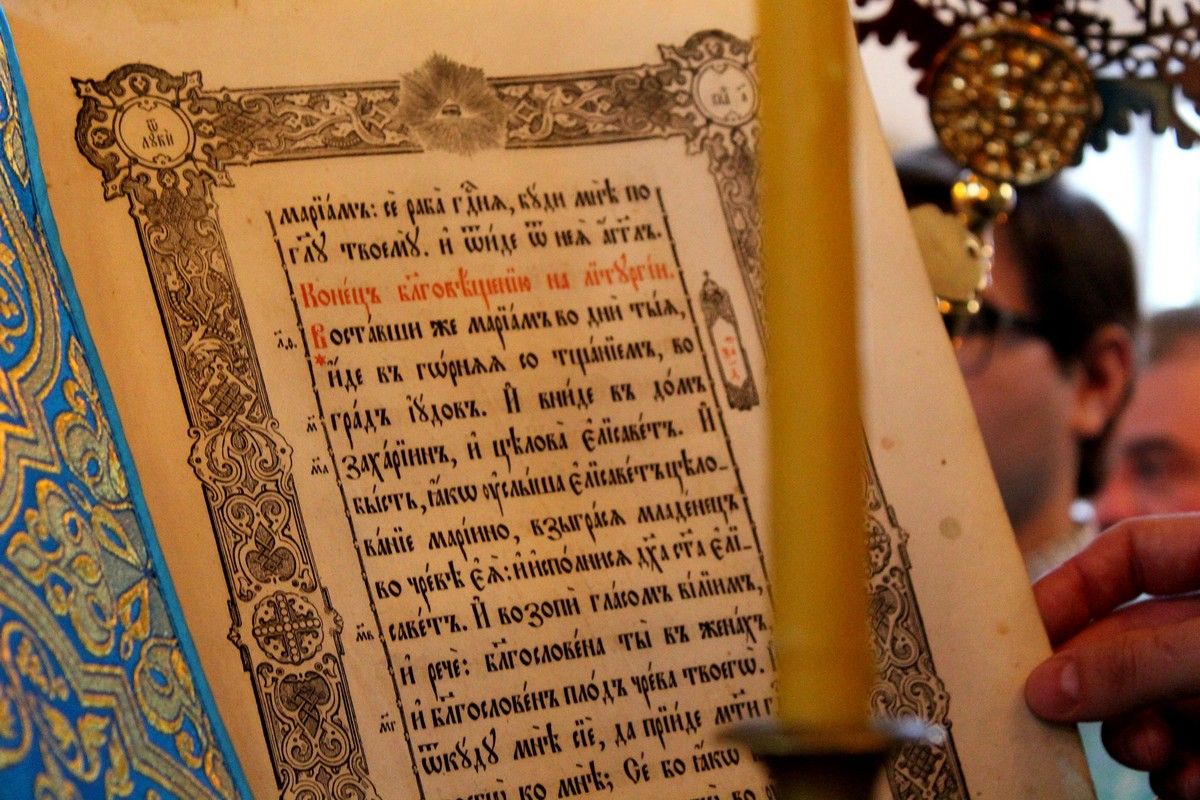 ѿ
лꙋкѝ
марїа́мъ: сѐ раба̀ гдⷭ҇нѧ, бꙋ́ди мнѣ̀ по
гл҃ꙋ твоемꙋ̀. и҆ ѿи́де ѿ неѧ̀ а҆́гг҃лъ.
Коне́цъ бл҃говѣ́щенїю на лїтꙋргі́и.
л҃ѳ. Воста́вши же марїа́мъ во дни̑ ты̑ѧ,
* и҆́де въ гѡ́рнѧѧ со тща́нїемъ, во
м҃ гра́дъ і҆ꙋ́довъ. И҆ вни́де въ до́мъ
м҃а заха́рїинъ, и҆ цѣлова̀ є҆лїсаве́тъ. И҆
бы́сть, ꙗ҆́кѡ ᲂу҆слы́ша є҆лїсаве́тъ цѣло-
ва́нїе марі́ино, взыгра́сѧ младе́нецъ
во чре́вѣ є҆ѧ̀: и҆ и҆спо́лнисѧ дх҃а ст҃а є҆лї-
м҃в саве́тъ. И҆ возопѝ гла́сомъ ве́лїимъ,
и҆ речѐ: бл҃гослове́на ты̀ въ жена́хъ,
м҃г и҆ бл҃гослове́нъ пло́дъ чре́ва твоегѡ̀.
ѿкꙋ́дꙋ мнѣ̀ сїѐ, да прїи́де мт҃и
ко мнѣ̀; Се́ бо ꙗ҆́кѡ